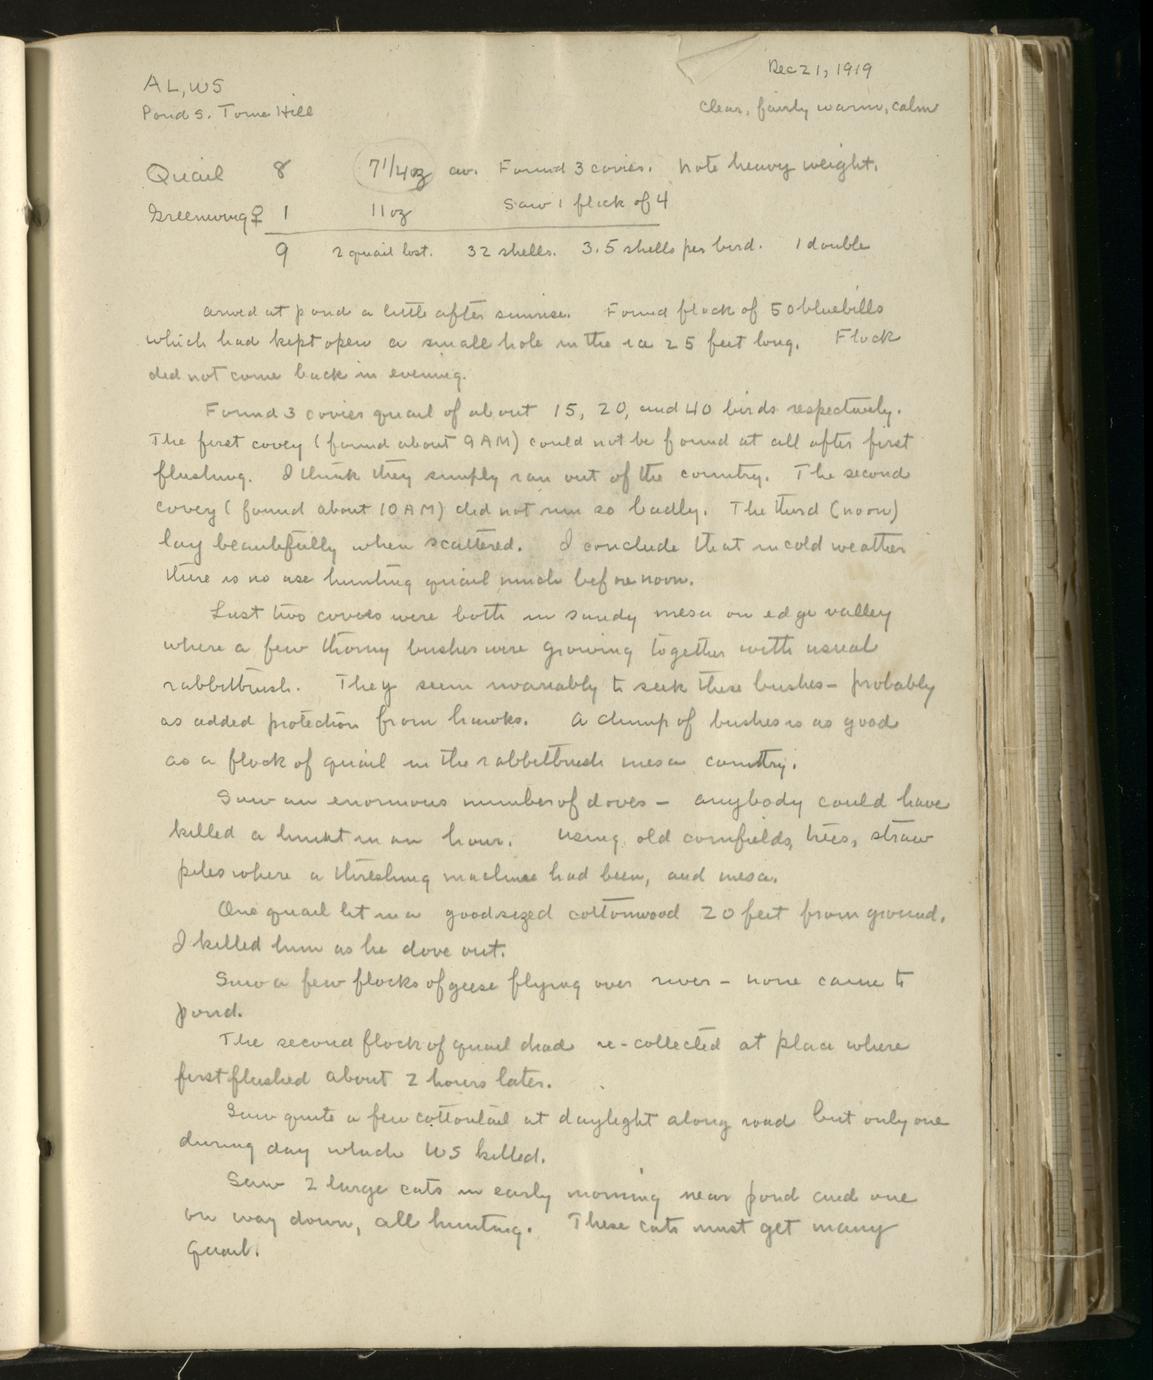 Dec 21, 1919
AL, WS
Pond S. Tome Hill
clear, fairly warm, calm
Quail 8 7 1/4 oz av. Found 3 covies. Note heavy weight.
Greenwing ♀ 1 11 oz Saw 1 flock of 4
9 2 quail lost. 32 shells. 3.5 shells per bird. 1 double
Arrived at pond a little after sunrise. Found flock of 50 bluebills
which had kept open a small hole in the ice 25 feet long. Flock
did not come back in evening.
Found 3 covies quail of about 15, 20, and 40 birds respectively.
The first covey (found about 9 AM) could not be found at all after first
flushing. I think they simply ran out of the country. The second
covey (found about 10 AM) did not run so badly. The third (noon)
lay beautifully when scattered. I conclude that in cold weather
there is no use hunting quail much before noon.
Last two covies were both in sandy mesa on edge valley
where a few thorny bushes were growing together with usual
rabbitbrush. They seem invariably to seek these bushes - probably
as added protection from hawks. A clump of bushes is as good
as a flock of quail in the rabbitbrush mesa country.
Saw an enormous number of doves - anybody could have
killed a limit in an hour. Using old cornfields, trees, straw
piles where a threshing machine had been, and mesa.
One quail lit in a good sized cottonwood 20 feet from ground.
I killed him as he dove out.
Saw a few flocks of geese flying over river - none came to
pond.
The second flock of quail had re-collected at place where
first flushed about 2 hours later.
Saw quite a few cottontail at daylight along road but only one
during day which WS killed.
Saw 2 large cats in early morning near pond and one
on way down, all hunting. These cats must get many
quail.